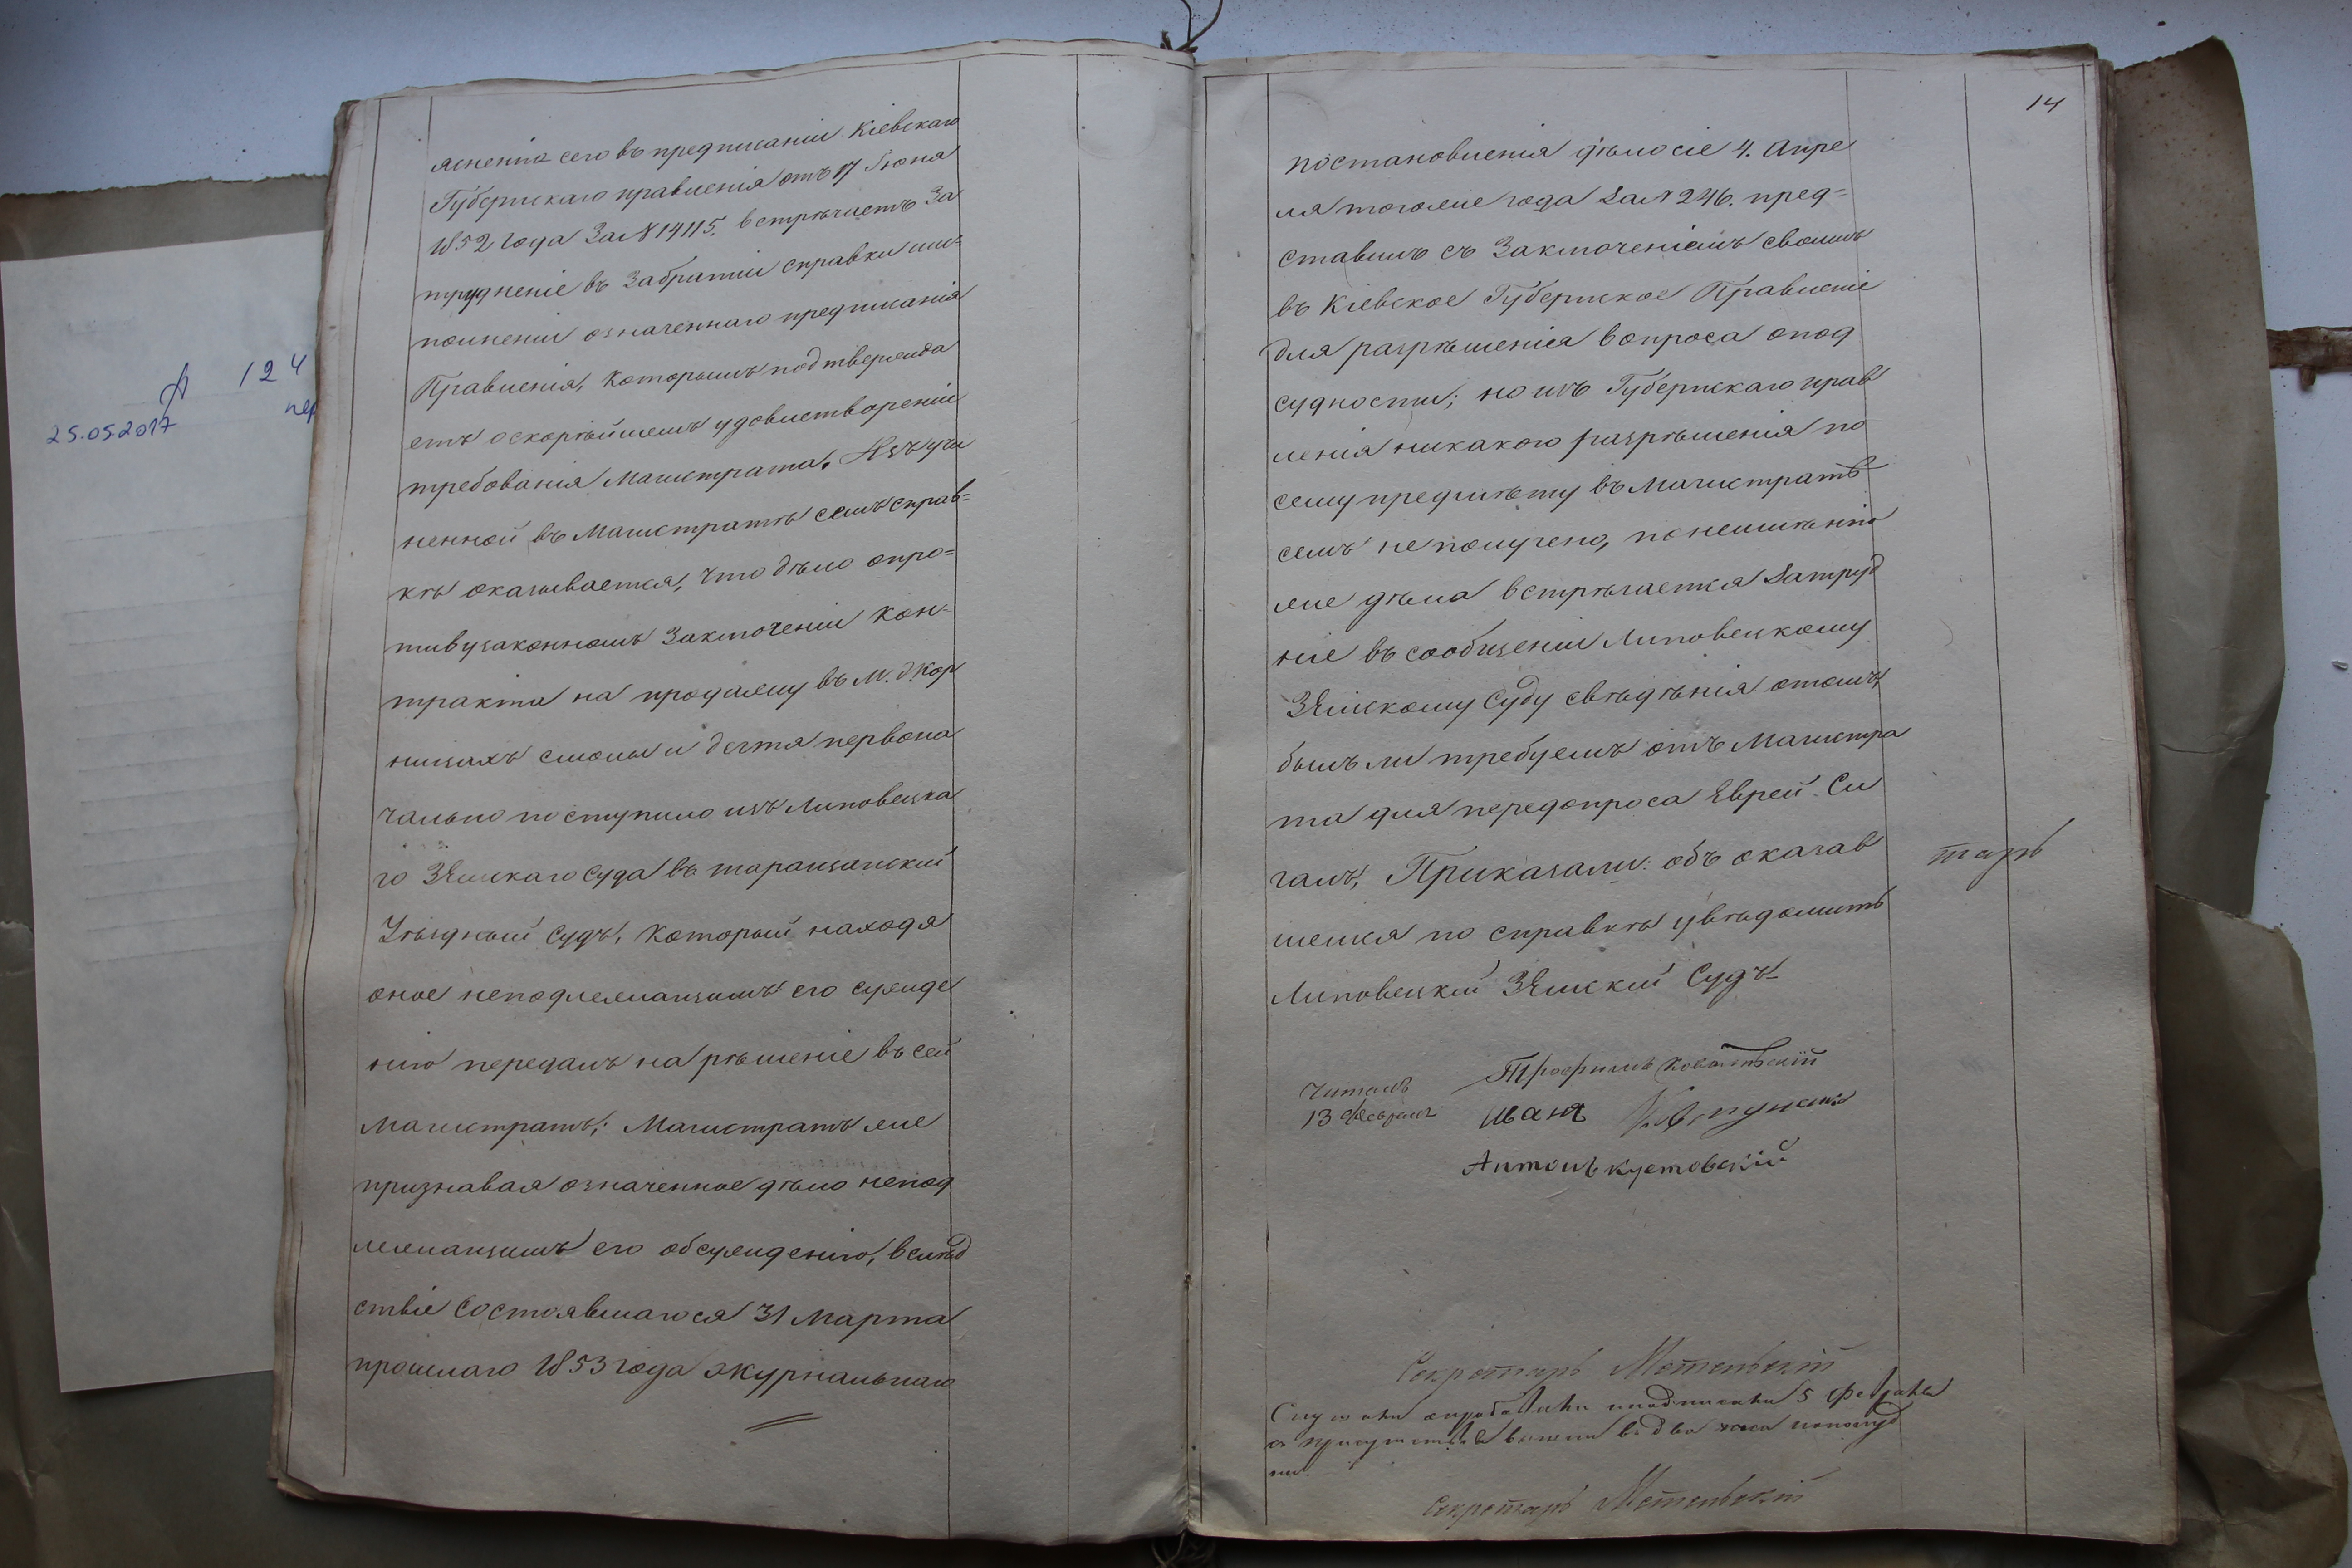 яснентя сего въ предписаніи Кіевскаго
Губернскаго правленія отъ 17 Іюня
1852 года За № 14115. встрѣчаетъ За
трудненіе въ Забратіи справки и
полненіи означеннаго предписанія
Правленія, Которымъ подтвержда
етъ оскорѣйшемъ удовлетвореніи
требованія Магистрата. Изъ учи
ненной въ Магистратѣ семъ справ=
кѣ оказывается, Что дѣло опро=
тивузаконномъ Заключеніи Кон-
тракта на продажу въ М. д. Кор
ницахъ смолы и дегтя первона
чально поступило изъ Липовецка
го ЗЕмскаго Суда въ таращанскій
Уѣздный Судъ, Который находя
оное неподлежащимъ его сужде
нію передалъ на рѣшеніе въ сей
Магистратъ; Магистратъ же
признавая означенное дѣло непод
лежащимъ его обсужденію, вслѣд
ствіе Состоявшагося 31 Марта
прошлаго 1853 года Журнальнаго
14
постановленія дѣло сіе 4. Апре
ля того же года За № 246. пред=
ставилъ съ Заключеніемъ своимъ
въ Кіевское Губернское Правленіе
для разрѣшенія вопроса о под
судности; но изъ Губернскаго прав
ленія никакого разрѣшенія по
сему предмѣту въ Магистратѣ
семъ не получено, по неимѣнію
же дѣла встрѣчается Затруд
ніе въ сообщеніи Липовецкому
ЗЕмскому Суду свѣдѣнія о томъ,
былъ ли требуемъ отъ Магистра
та для передопроса Еврей Си
галъ, Приказали: объ оказав
шемся по справкѣ увѣдомить
Липовецкій ЗЕмскій Судъ
тарь
Читалъ
13 Февраля
Трофимъ Ковальскій
Иванъ
Антонъ Кустовскій
Секретарь
Слушанъ и подписанъ 5 Февраля
а присутствіе вышли въ два часа пополуд
ни.
Секретарь
А 124
пер
25.05.2017